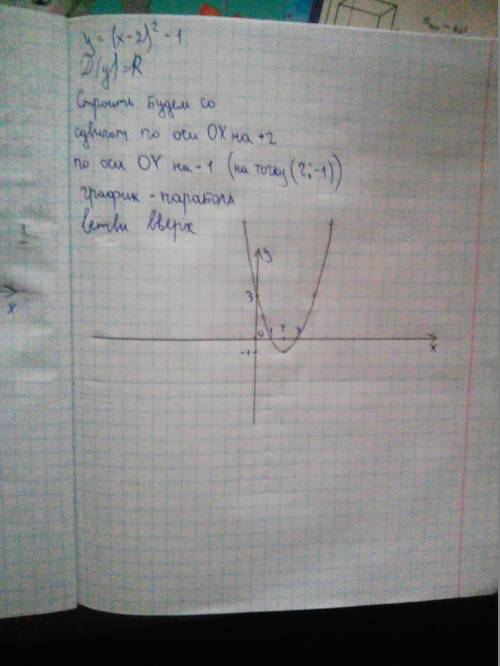 y = (x-2)² - 1
D(y) = R
Строить будем со
сдвигом по оси OX на +2
по оси OY на -1 (на точку (2;-1))
график - парабола
ветви вверх
y
3
0 1 2 3
x
-1
x